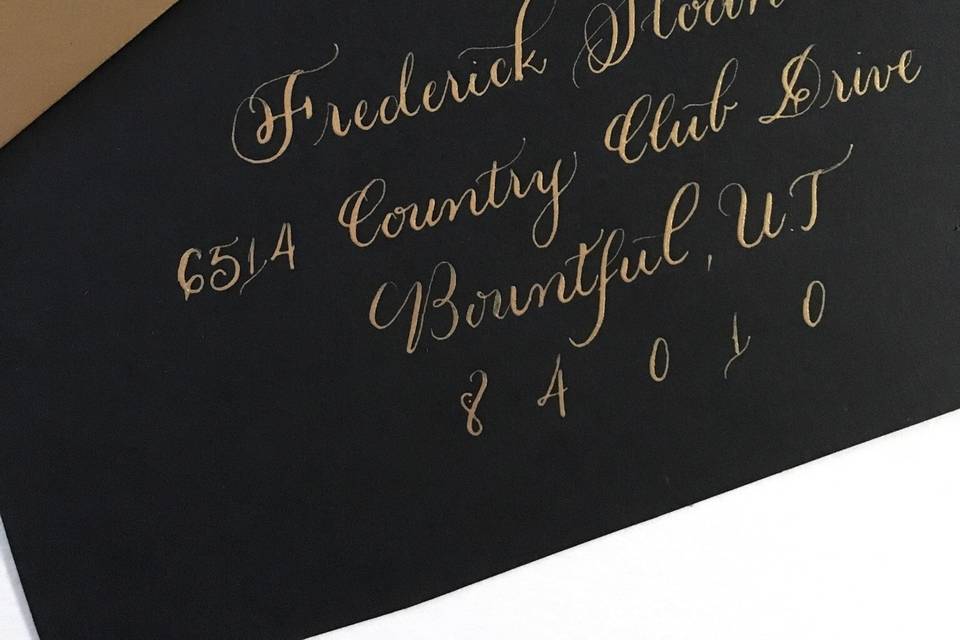 Frederick
6514 Country Club Drive
Bountful, UT
84010